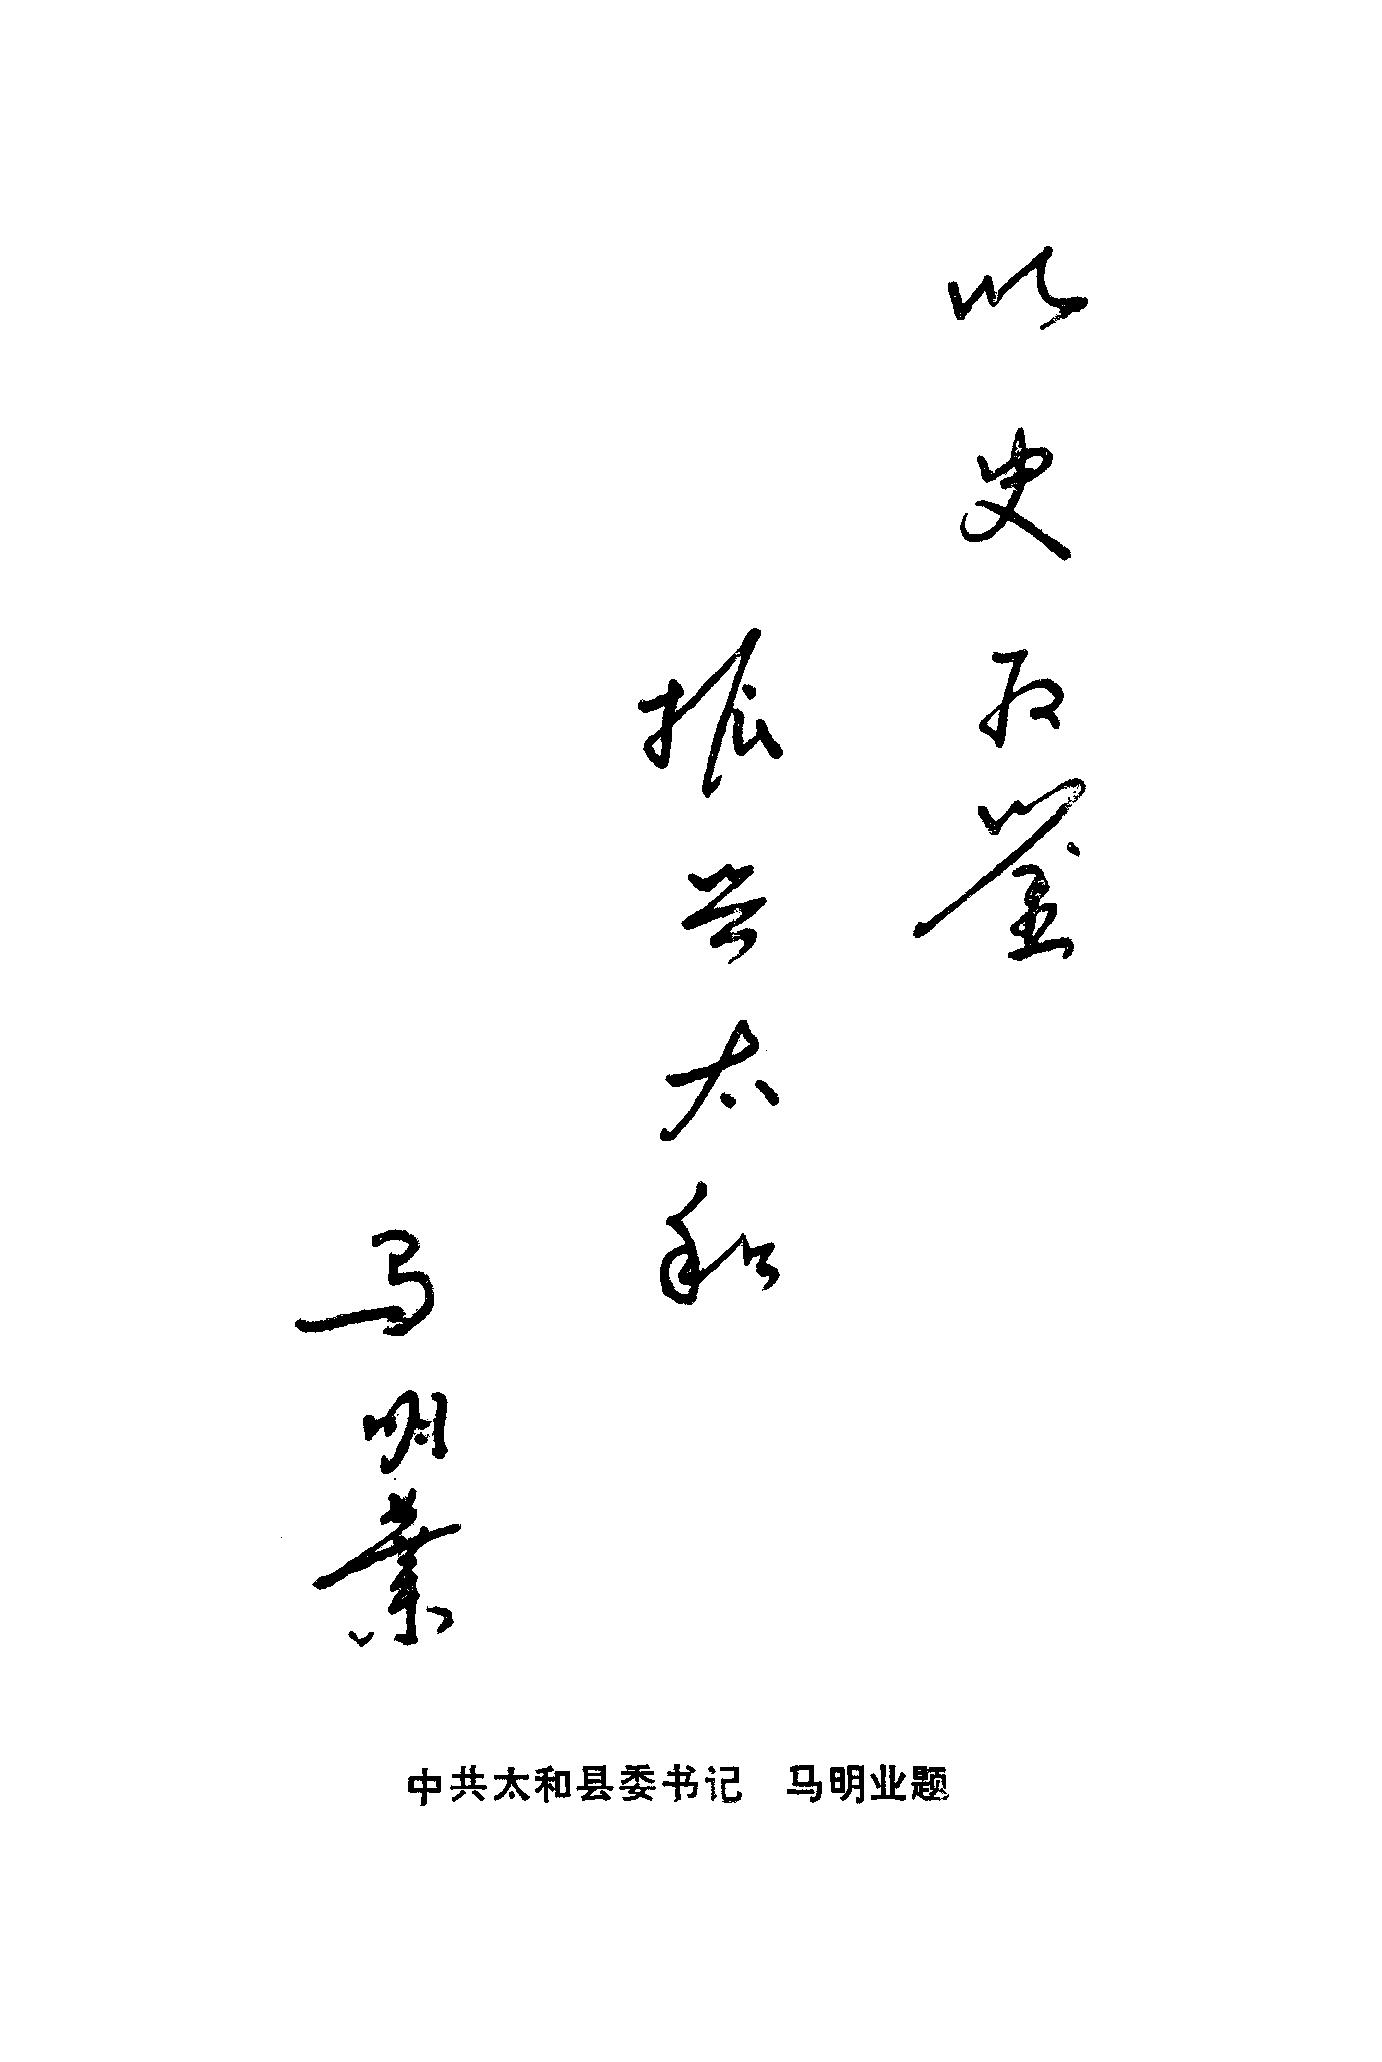 以史为鉴
振兴太和
马明業
中共太和县委书记　马明业题